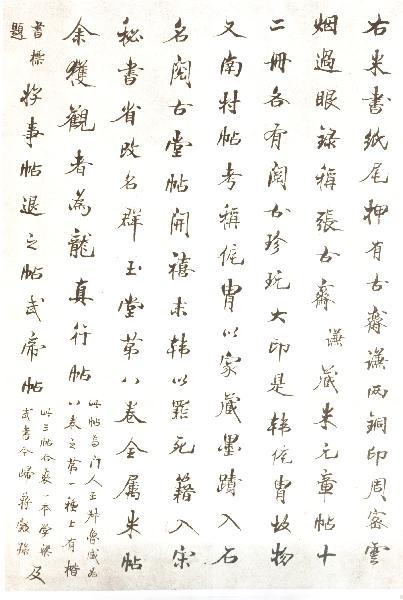 右米書紙尾押有古齋謙兩銅印周密雲
烟過眼錄稱張古齋謙藏米元章帖十
二冊各有閱古珍玩大印是韓侂冑故物
又南村帖考稱侂冑以家藏墨蹟入石
名閱古堂帖開禧末韓以罪死籍入宋
秘書省改名群玉堂第八卷全屬米帖
余獲觀者為龍真行帖
此帖為門人王
八卷之第一種上有楷
書標
題
將事帖退之帖武帝帖
此三帖合裝一本學梁
武者今歸蔣穀孫
及